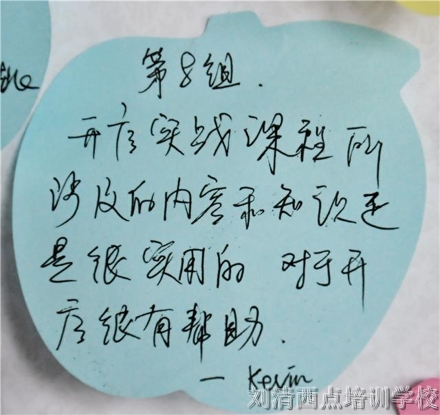 第8组.
开店实战课程所
涉及的内容和知识还
是很实用的 对于开
店很有帮助.
— Kevin
刘清西点培训学校